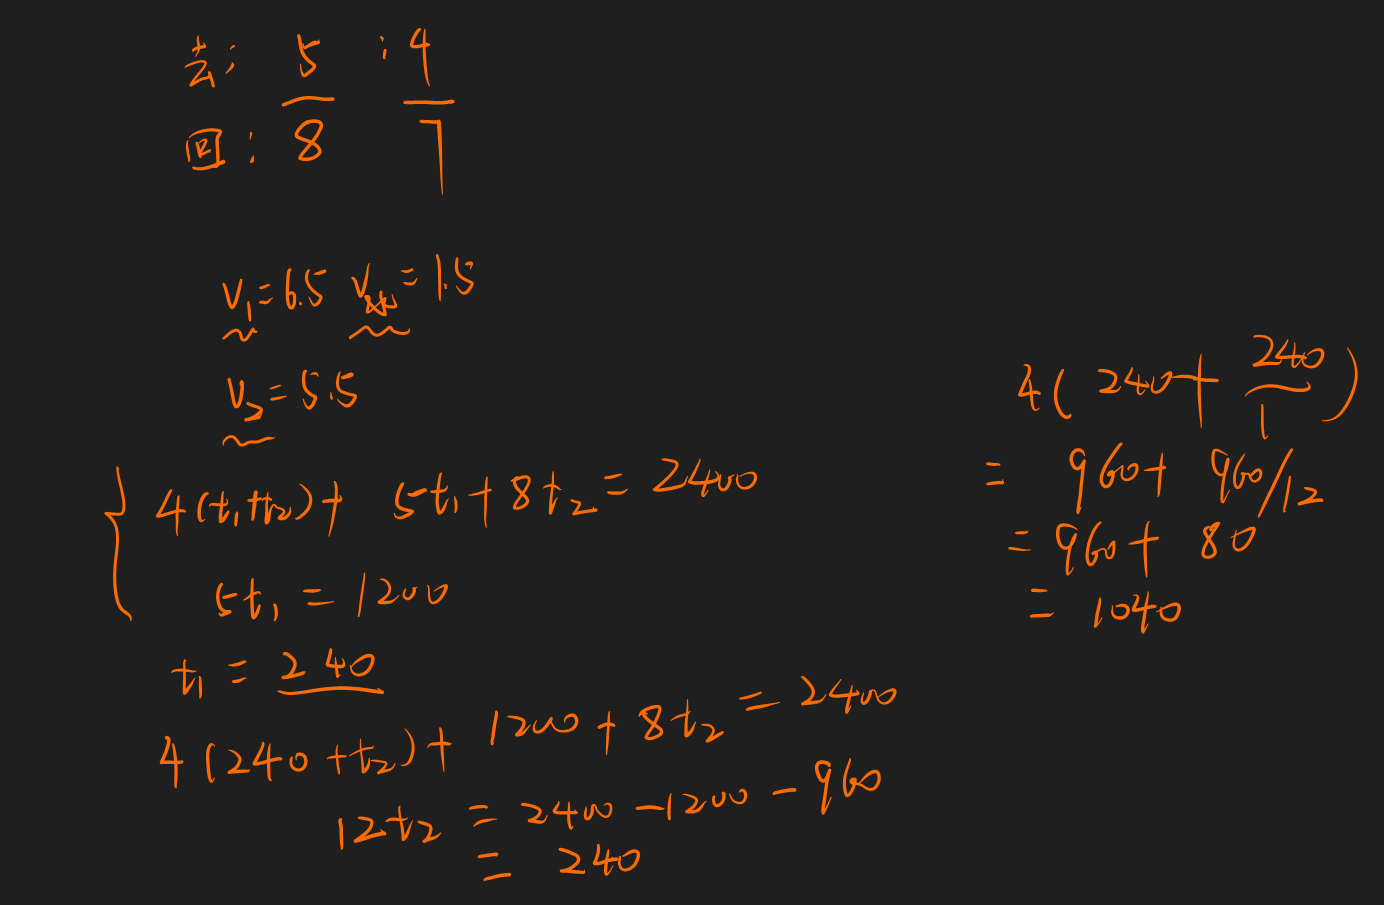 去: 5 : 4
回: 8 7
V₁=6.5 V水=1.5
V₂=5.5
4(t₁+t₂)+ 5t₁+8t₂=2400
5t₁=1200
t₁=240
4(240+t₂)+ 1200+8t₂=2400
12t₂ = 2400-1200-960
= 240
4(240+240/1)
= 960+ 960/12
= 960+ 80
= 1040